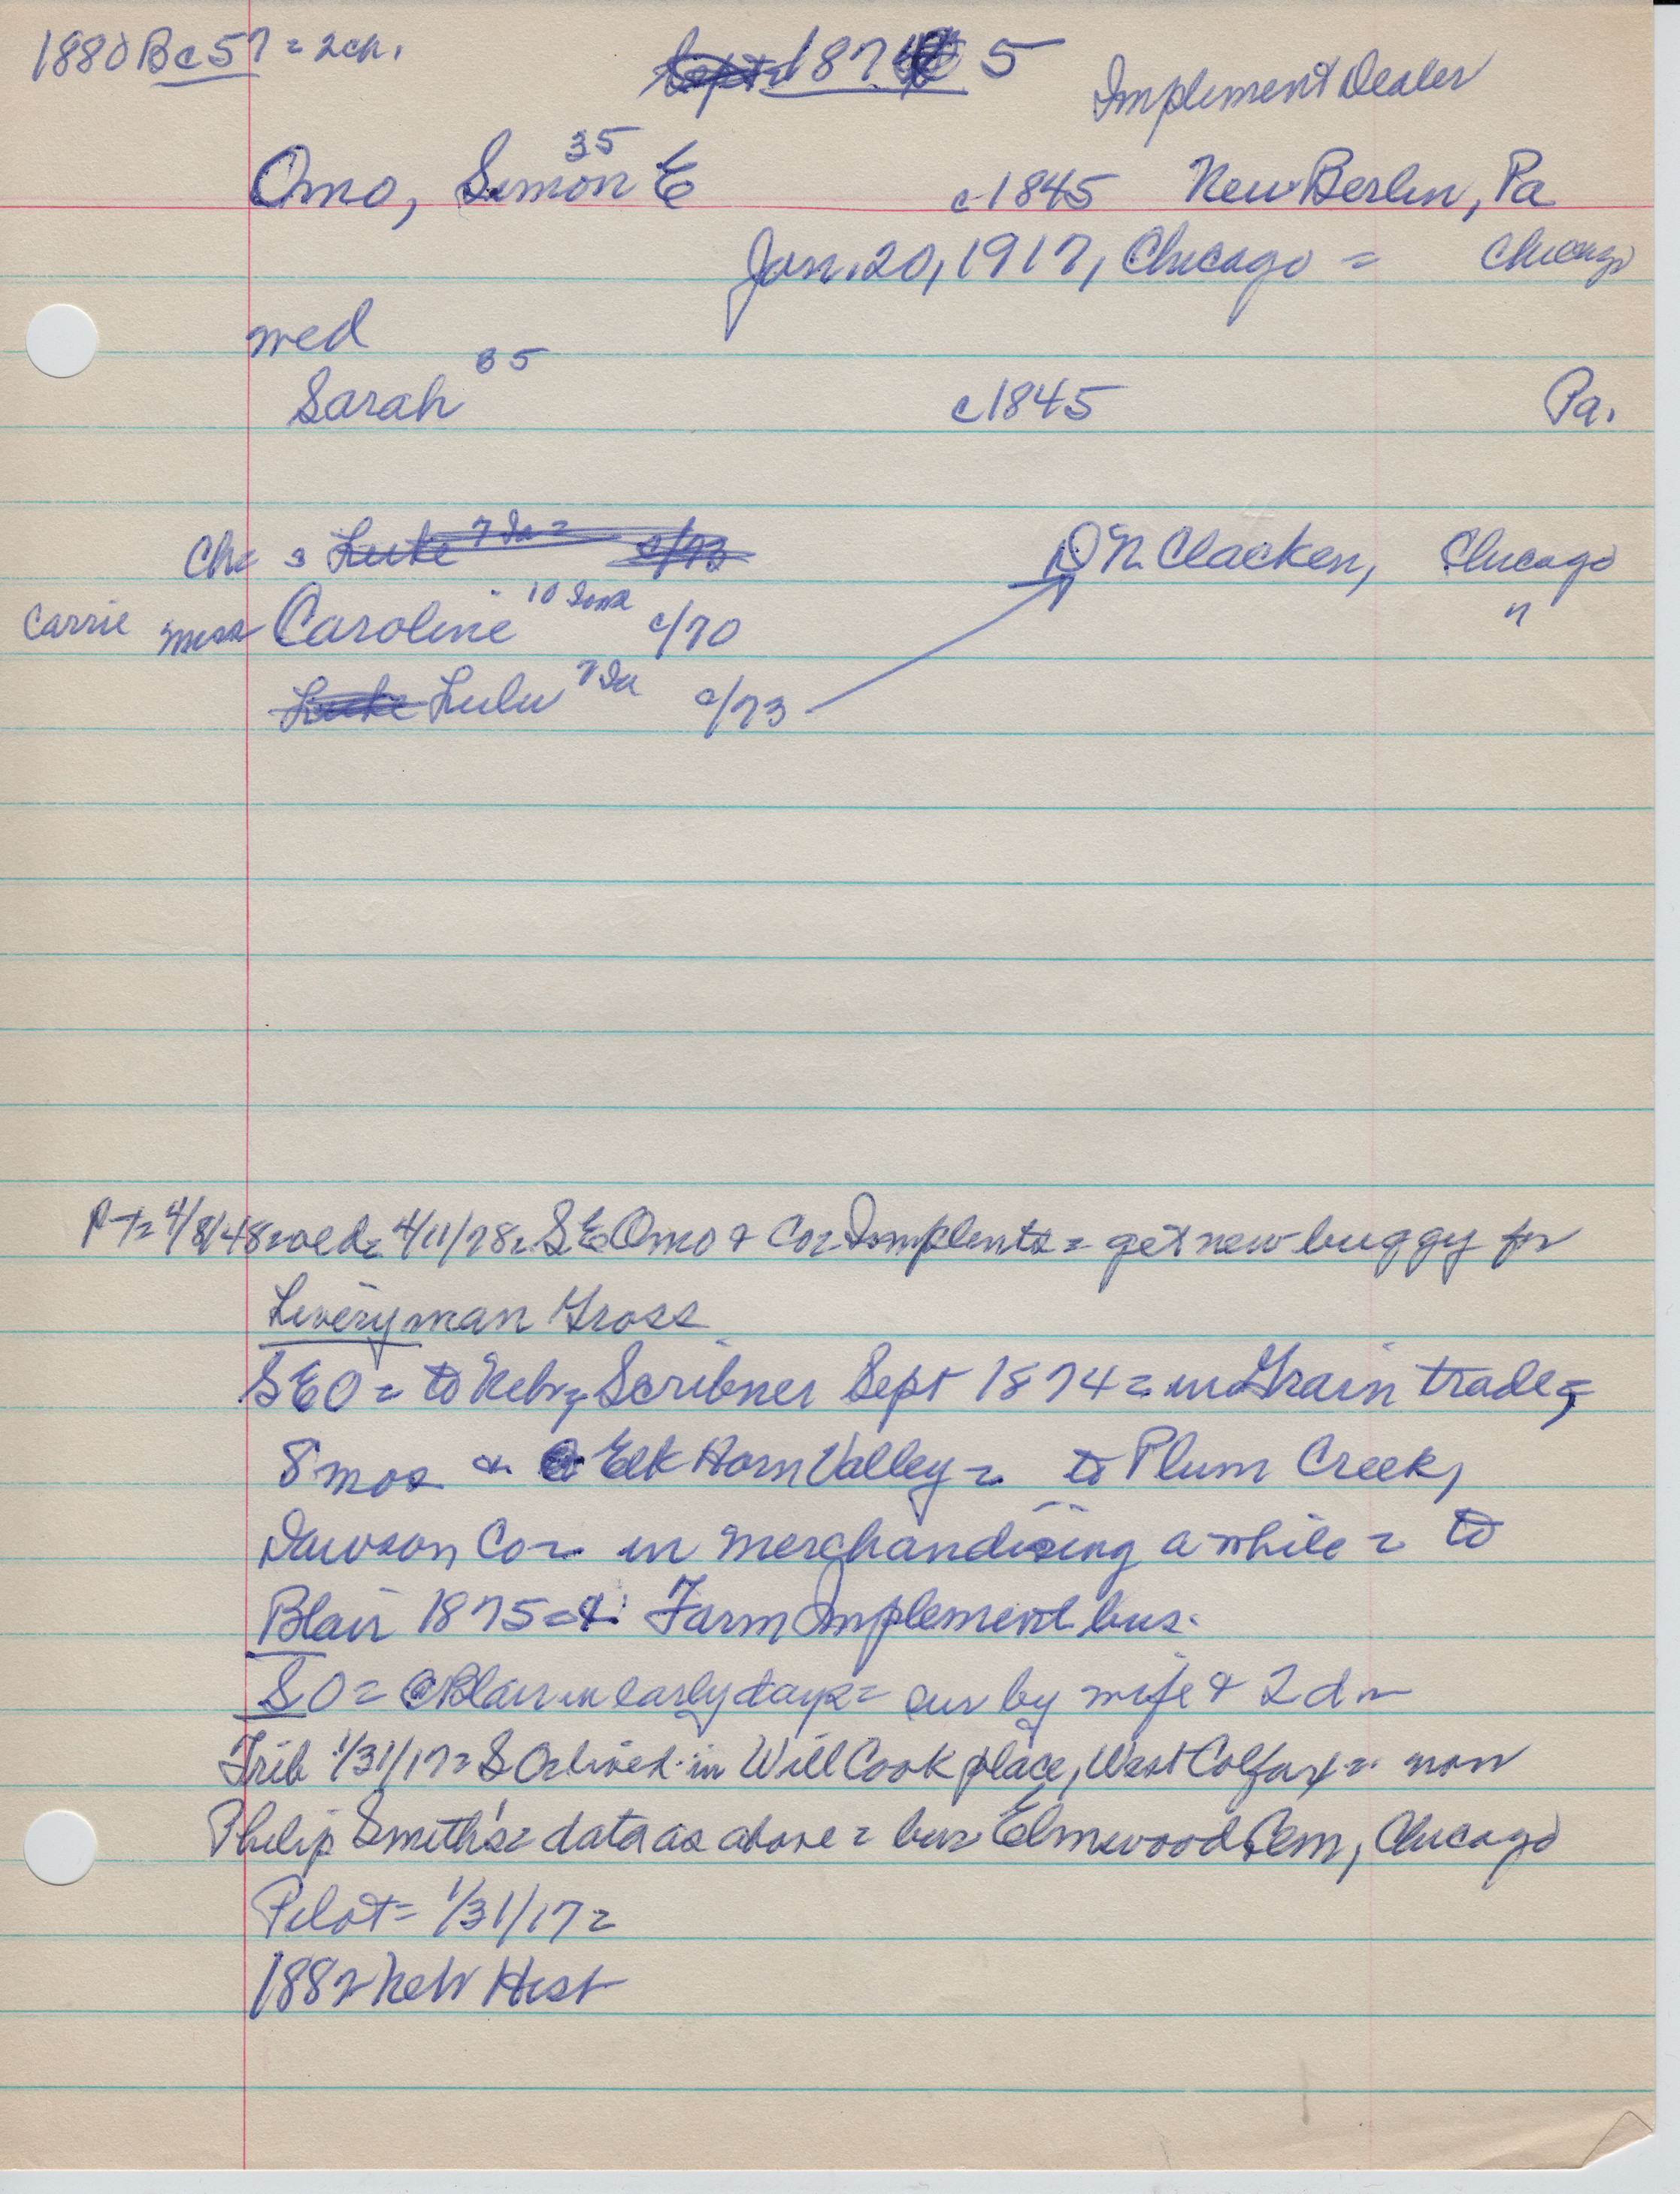 1880 Bc 57 = 2 ch.
Sept 1874 5
Implement Dealer
35
Omo, Simon E c 1845 New Berlin, Pa
Jan. 20, 1917, Chicago = Chicago
med
Sarah 35 c 1845 Pa.
Ch = 3 Luke 7 Ia = c/73 D N. Clacken, Chicago
Carrie Miss Caroline 10 Iowa c/70 "
Luke Lulu 7 Ia c/73
PT = 4/8/48 = old = 4/11/78 = S E Omo & Co = Implents = get new buggy for
Liveryman Gross
S E O = to Nebr = Scribner Sept 1874 = in Grain trade =
8 mos & @ Elk Horn Valley = to Plum Creek,
Dawson Co = in merchandising awhile = to
Blair 1875 = & Farm Implement bus.
S O = @ Blair in early days = sur by wife & 2 d =
Trib 1/31/17 = S O = lived in Will Cook place, West Colfax = now
Philip Smith's = data as above = bur Elmwood Cem, Chicago
Pilot = 1/31/17 =
1882 Neb Hist